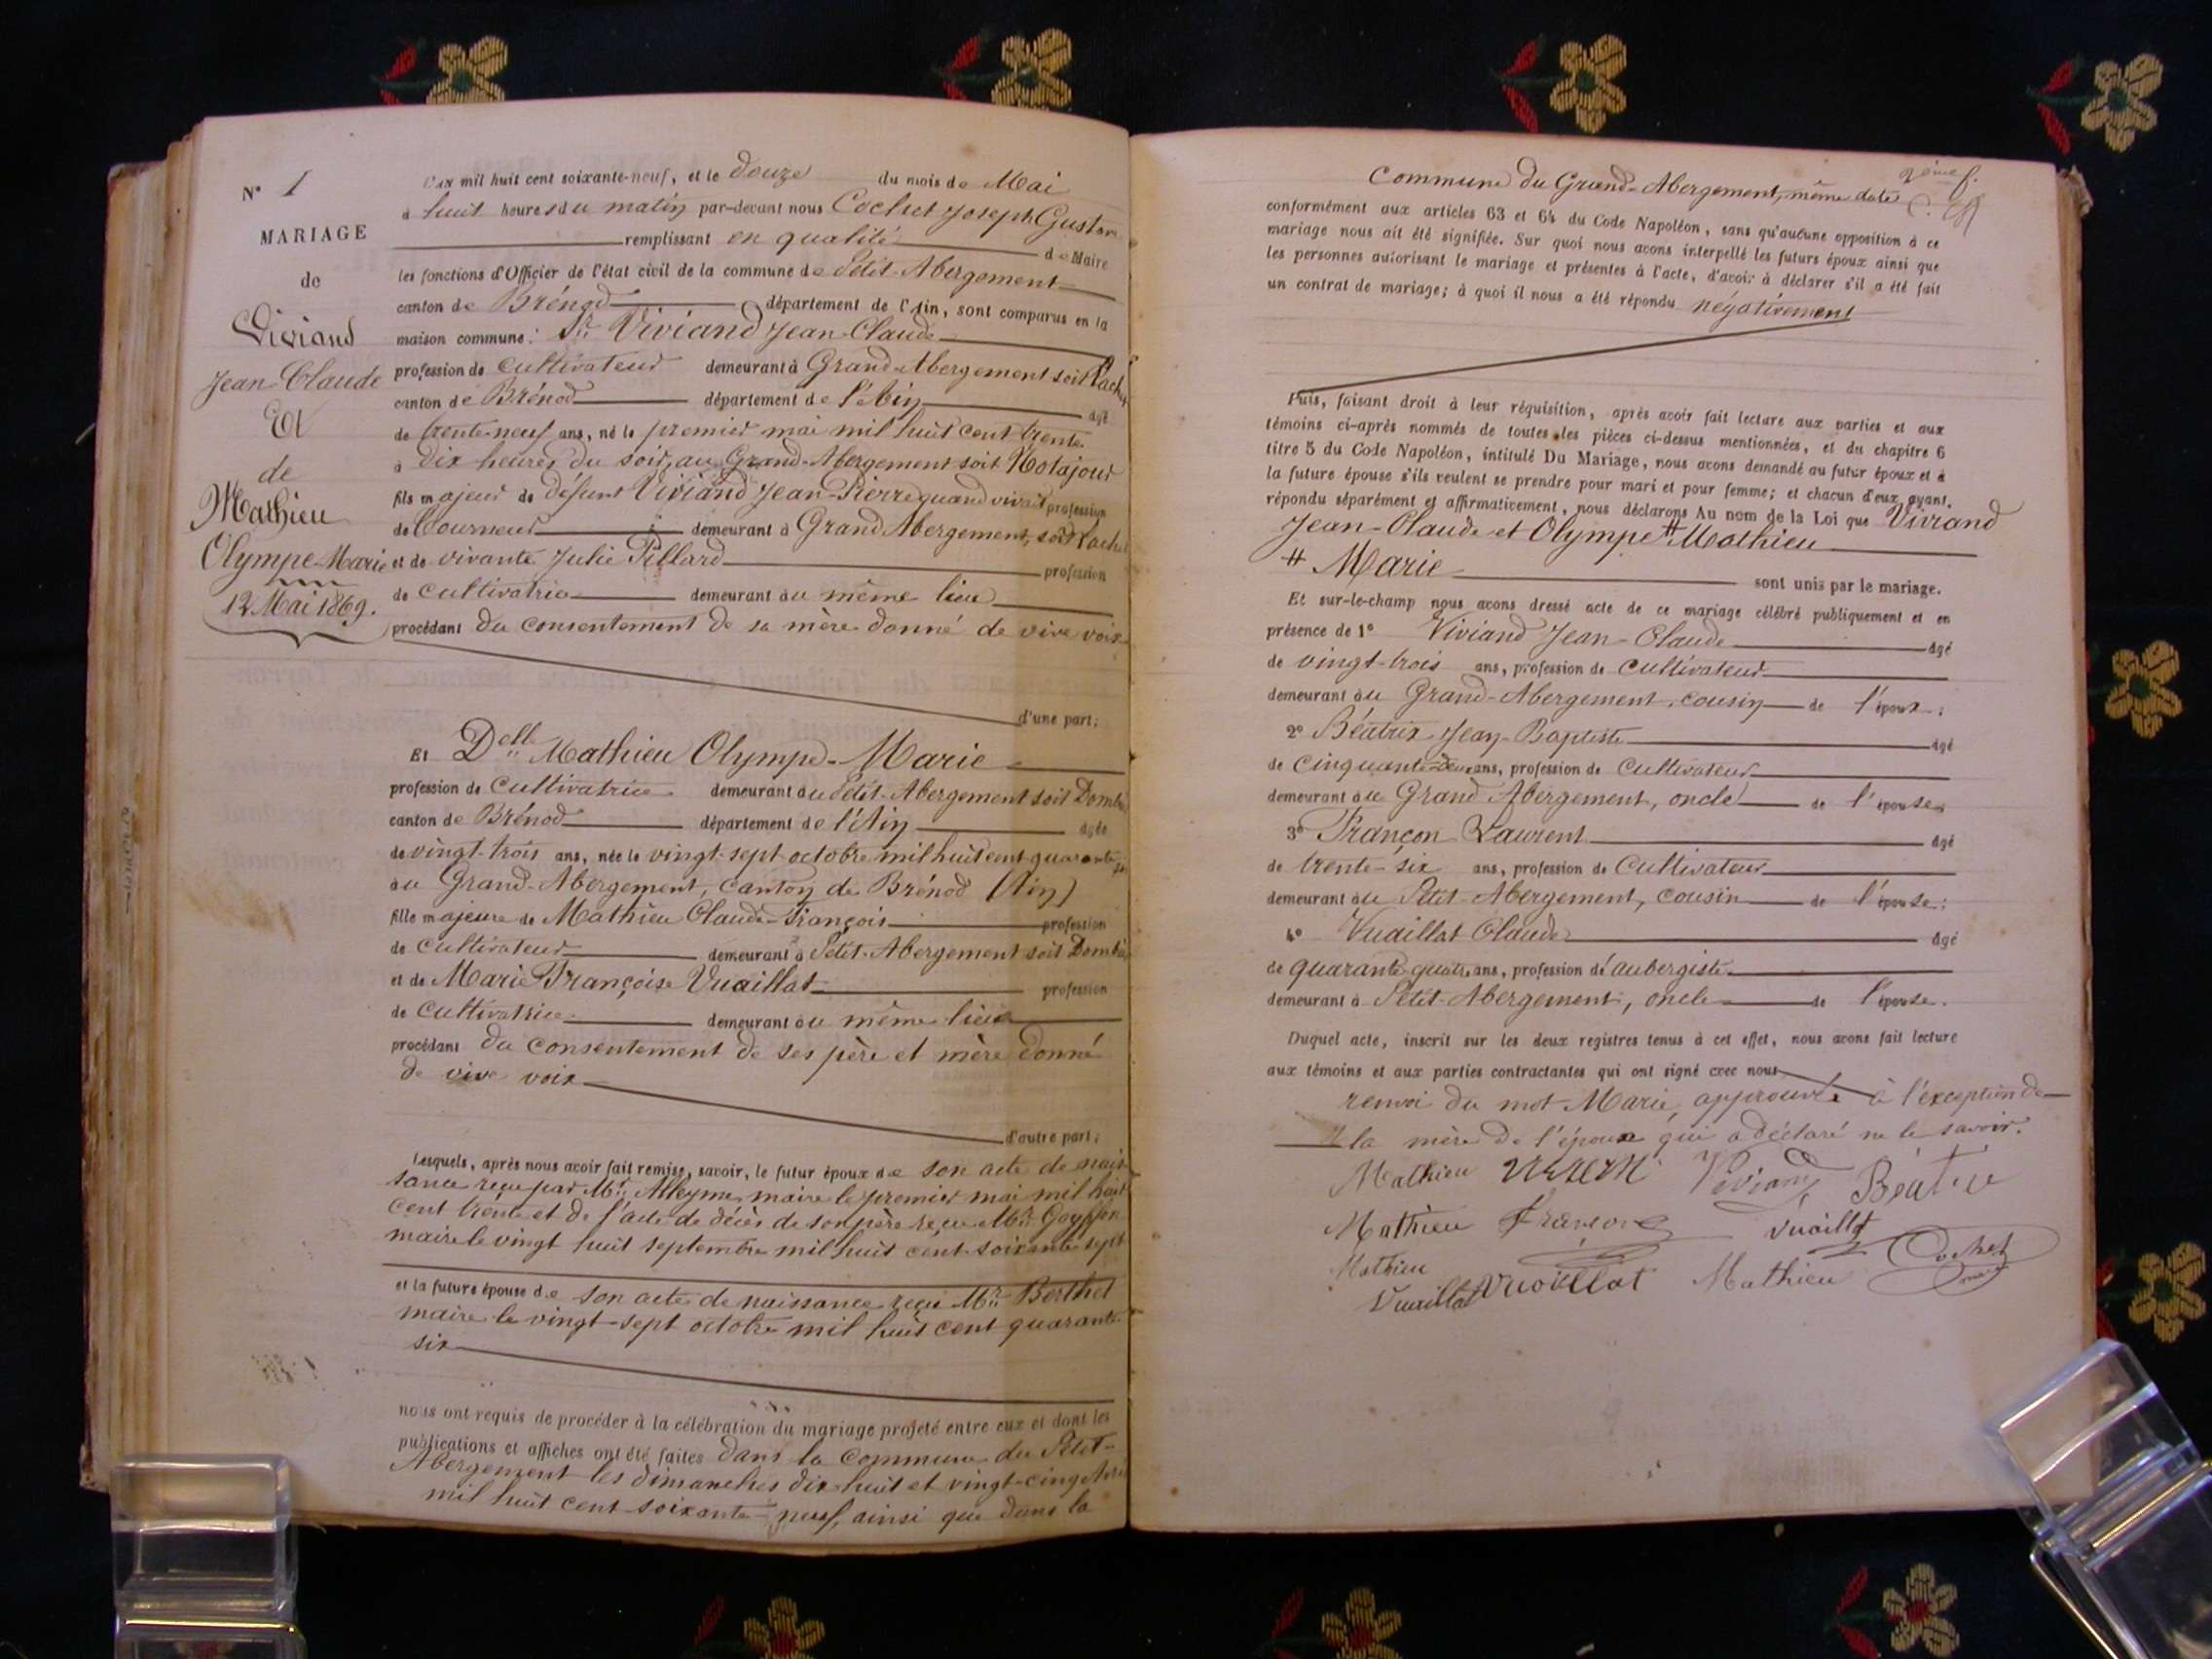 N° 1
MARIAGE
de
Viviand
Jean-Claude
Et
de
Mathieu
Olympe-Marie
12 Mai 1869.
L'an mil huit cent soixante-neuf, et le douze du mois de Mai
à huit heures du matin par-devant nous Cochet Joseph Gustave
remplissant en qualité de Maire
les fonctions d'Officier de l'état civil de la commune de Petit-Abergement
canton de Brénod département de l'Ain, sont comparus en la
maison commune: Sr Viviand Jean-Claude
profession de cultivateur demeurant à Grand-Abergement soit
canton de Brénod département de l'Ain âgé
de trente-neuf ans, né le premier mai mil huit cent trente
à dix heures du soir, au Grand-Abergement soit
fils majeur de défunt Viviand Jean-Pierre quand vivait profession
de demeurant à Grand Abergement, soit
et de vivante Julie Pillard profession
de cultivatrice demeurant au même lieu
procédant du consentement de sa mère donné de vive voix
d'une part;
Et Delle Mathieu Olympe-Marie
profession de cultivatrice demeurant au Petit-Abergement soit
canton de Brénod département de l'Ain âgée
de vingt-trois ans, née le vingt-sept octobre mil huit cent quarante
au Grand-Abergement, canton de Brénod (Ain)
fille majeure de Mathieu Claude-François profession
de cultivateur demeurant à Petit-Abergement soit
et de Marie Françoise Vuaillat profession
de cultivatrice demeurant au même lieu
procédant du consentement de ses père et mère donné
de vive voix
d'autre part;
Lesquels, après nous avoir fait remise, savoir, le futur époux de son acte de nais
sance reçu par Mr Alleyme, maire le premier mai mil huit
cent trente et de l'acte de décès de son père reçu Mr
maire le vingt huit septembre mil huit cent soixante sept
et la future épouse de son acte de naissance reçu Mr Berthet
maire le vingt-sept octobre mil huit cent quarante
six
nous ont requis de procéder à la célébration du mariage projeté entre eux et dont les
publications et affiches ont été faites dans la commune du Petit-
Abergement les dimanches dix-huit et vingt-cinq Avril
mil huit cent soixante-neuf, ainsi que dans la
2ème f.
Commune du Grand-Abergement, même date
conformément aux articles 63 et 64 du Code Napoléon, sans qu'aucune opposition à ce
mariage nous ait été signifiée. Sur quoi nous avons interpellé les futurs époux ainsi que
les personnes autorisant le mariage et présentes à l'acte, d'avoir à déclarer s'il a été fait
un contrat de mariage; à quoi il nous a été répondu négativement
Puis, faisant droit à leur réquisition, après avoir fait lecture aux parties et aux
témoins ci-après nommés de toutes les pièces ci-dessus mentionnées, et du chapitre 6
titre 5 du Code Napoléon, intitulé Du Mariage, nous avons demandé au futur époux et à
la future épouse s'ils veulent se prendre pour mari et pour femme; et chacun d'eux ayant
répondu séparément et affirmativement, nous déclarons Au nom de la Loi que Viviand
Jean-Claude et Olympe # Mathieu
# Marie sont unis par le mariage.
Et sur-le-champ nous avons dressé acte de ce mariage célébré publiquement et en
présence de 1° Viviand Jean-Claude âgé
de vingt-trois ans, profession de cultivateur
demeurant au Grand-Abergement, cousin de l'époux;
2° Béatrix Jean-Baptiste âgé
de cinquante-deux ans, profession de cultivateur
demeurant au Grand Abergement, oncle de l'épouse;
3° Françon Laurent âgé
de trente-six ans, profession de cultivateur
demeurant au Petit-Abergement, cousin de l'épouse;
4° Vuaillat Claude âgé
de quarante quatre ans, profession d'aubergiste
demeurant à Petit-Abergement, oncle de l'épouse.
Duquel acte, inscrit sur les deux registres tenus à cet effet, nous avons fait lecture
aux témoins et aux parties contractantes qui ont signé avec nous
renvoi du mot Marie, approuvé à l'exception de
la mère de l'époux qui a déclaré ne le savoir.
Mathieu Viviand Béatrix
Mathieu Françon Vuaillat Cochet
Mathieu
Vuaillat Vuaillat Mathieu